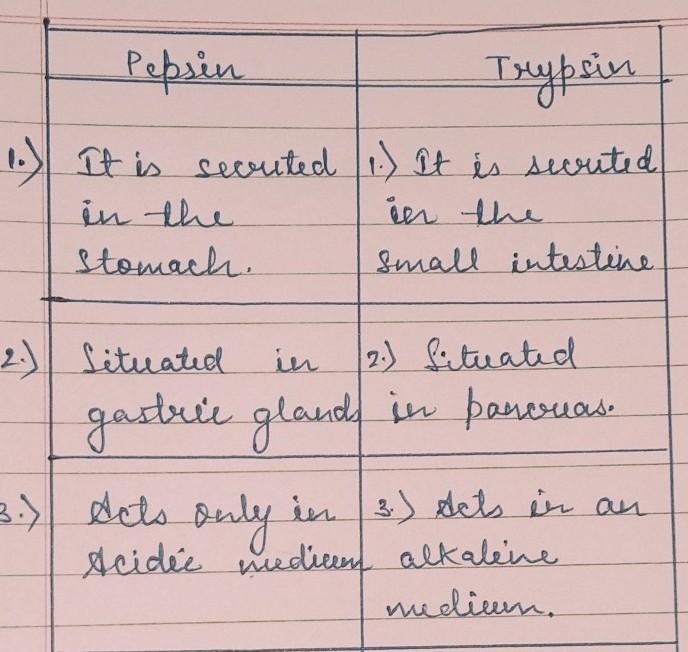 Pepsin Trypsin
1.) It is secruted 1.) It is secruted
in the in the
Stomach. Small intestine
2.) Situated in 2.) Situated
gastric glands in pancruas.
3.) Acts only in 3.) Acts in an
Acidic medium alkaline
medium.